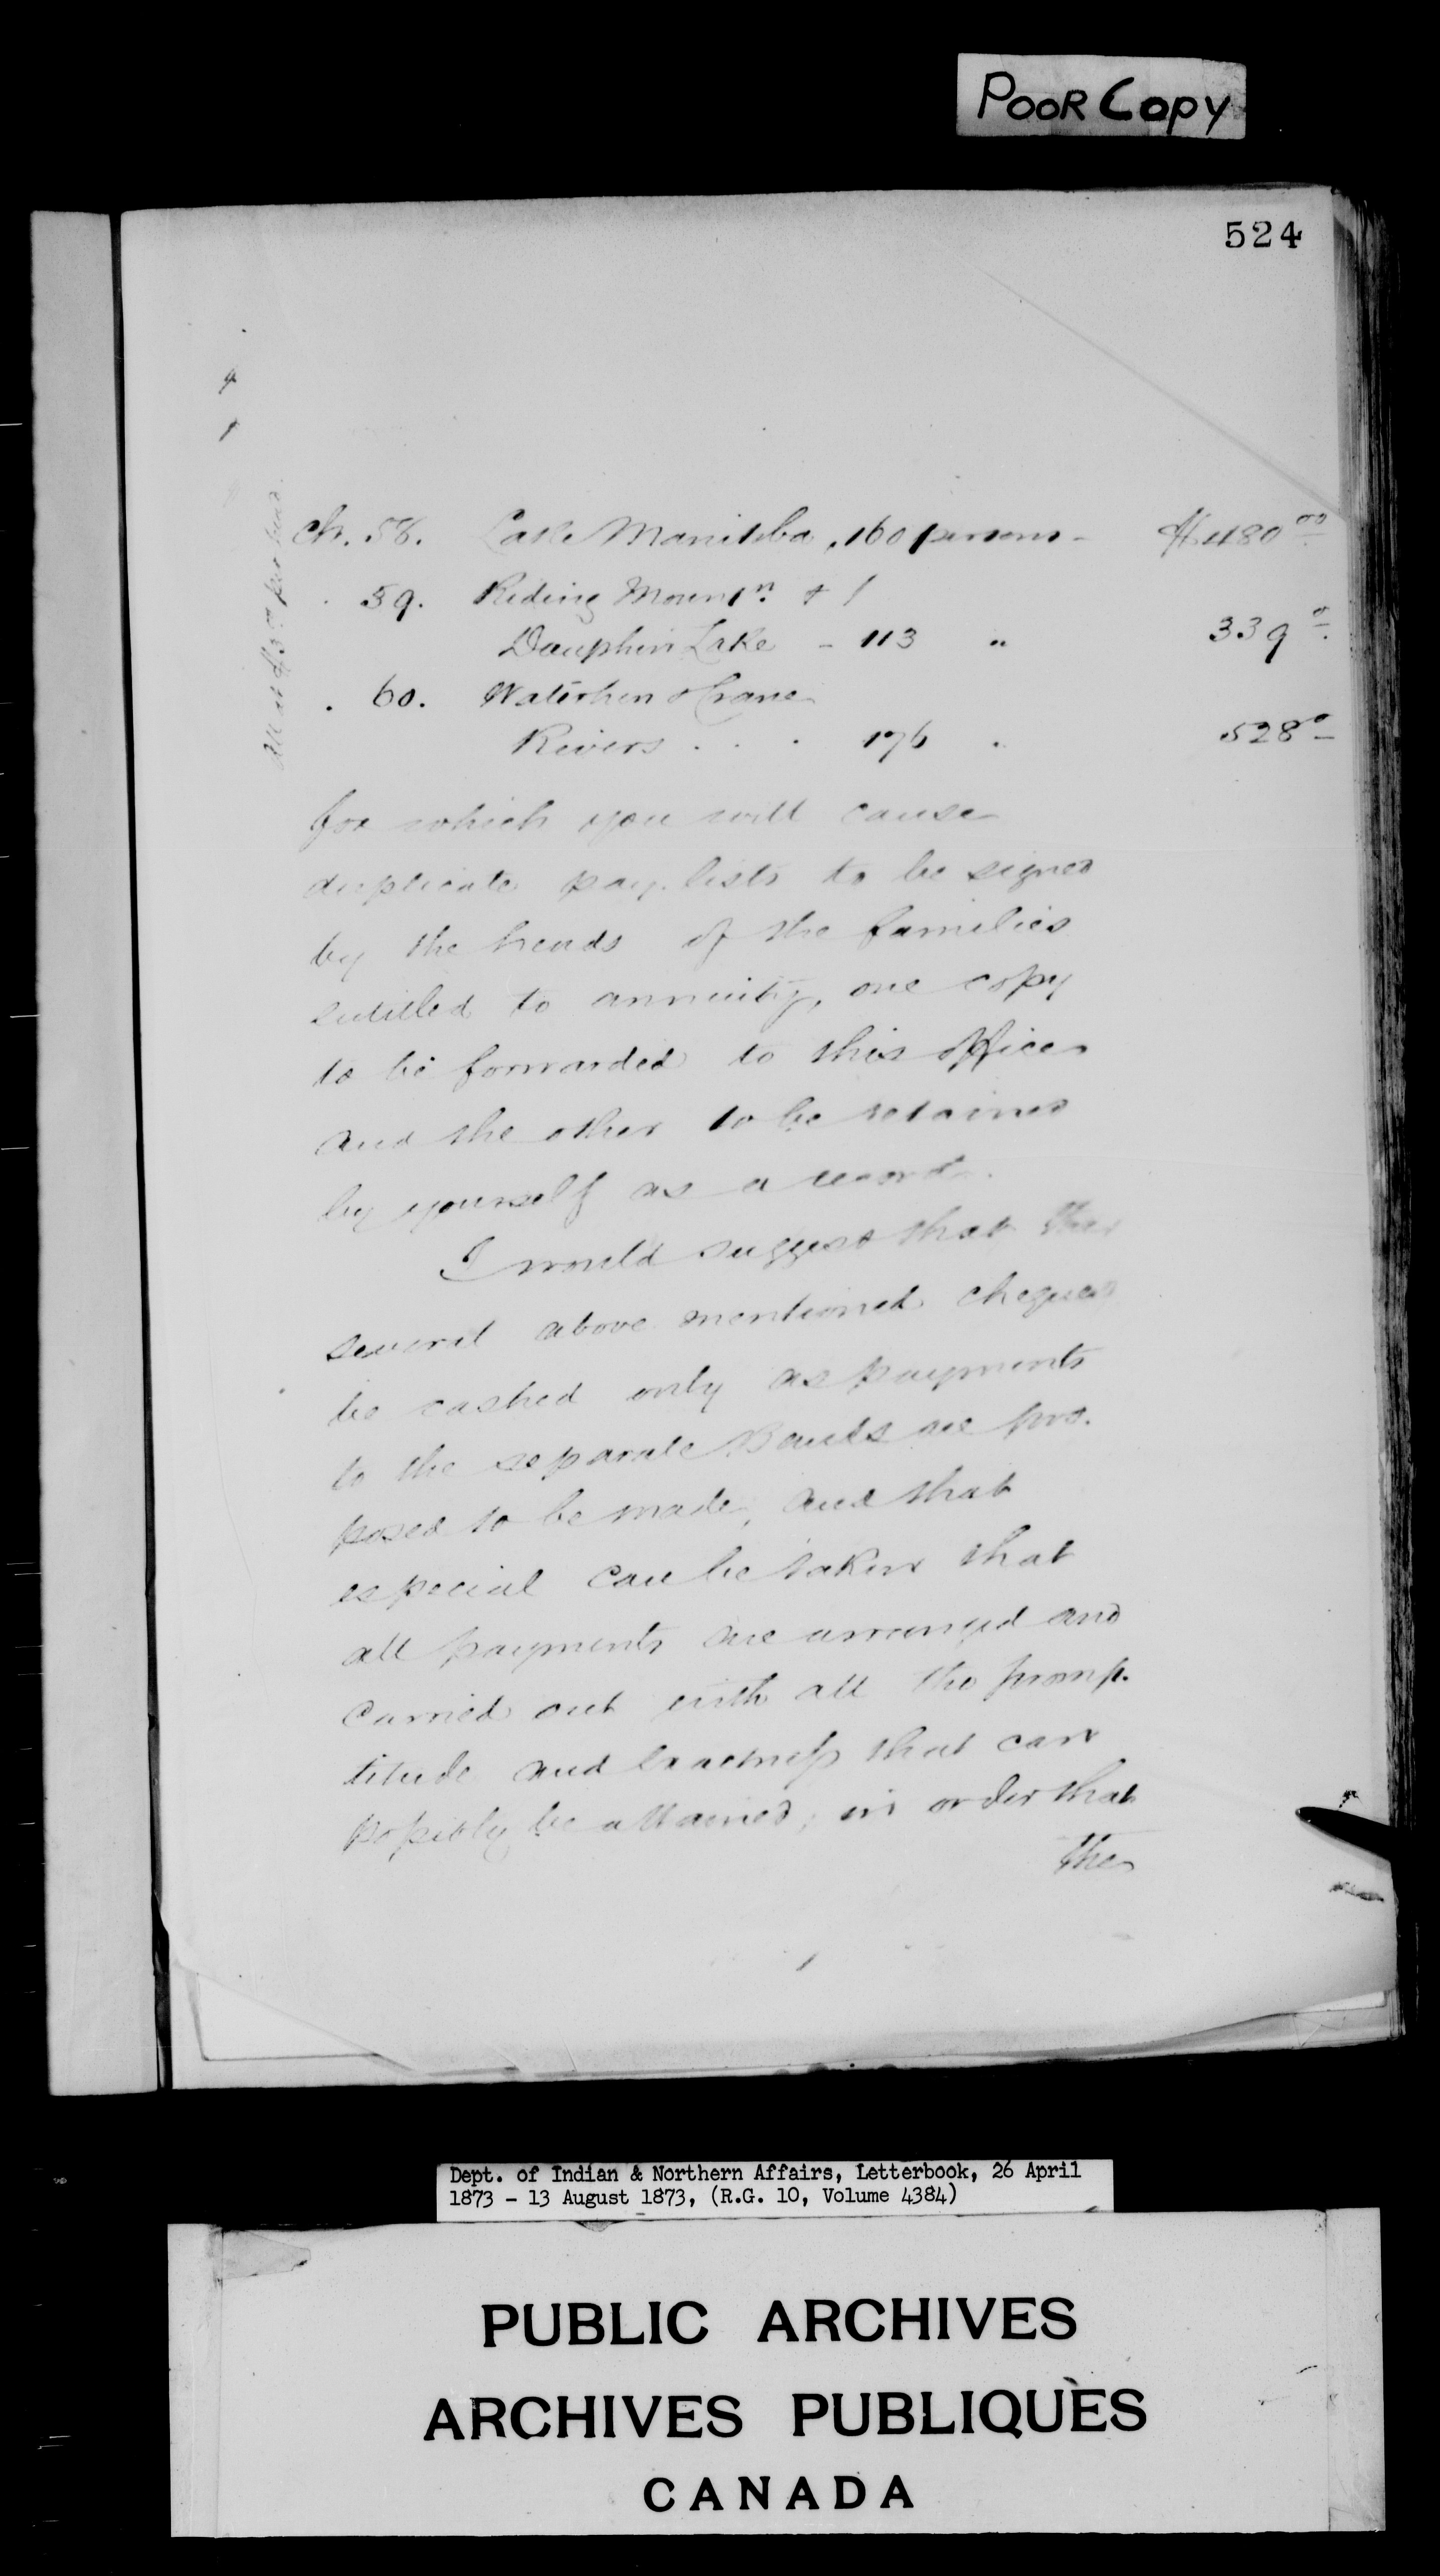 POOR COPY
524
All at $3.00 per head.
Ch. 58. Lake Manitoba, 160 persons - $480.00
. 59. Riding Mountn. &
Dauphin Lake - 113 " 339.0
. 60. Waterhen & Crane
Rivers . . . 176 " 528.0
for which you will cause
duplicate pay-lists to be signed
by the heads of the families
entitled to annuity, one copy
to be forwarded to this office
and the other to be retained
by yourself as a record.
I would suggest that the
several above mentioned cheques
be cashed only as payments
to the separate Bands are pro-
posed to be made, and that
especial care be taken that
all payments are arranged and
carried out with all the promp-
titude and exactness that can
possibly be attained, in order that
the
Dept. of Indian & Northern Affairs, Letterbook, 26 April
1873 - 13 August 1873, (R.G. 10, Volume 4384)
PUBLIC ARCHIVES
ARCHIVES PUBLIQUES
CANADA